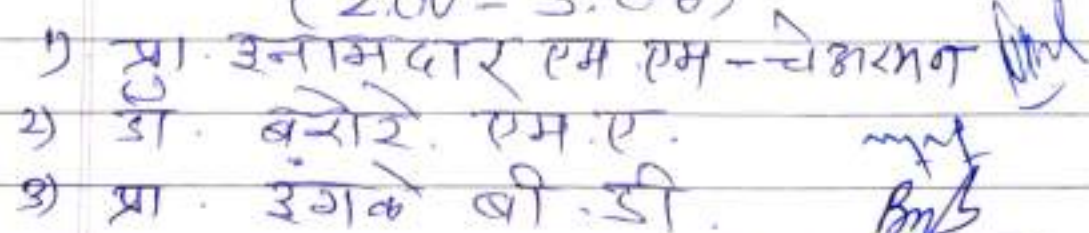 (2.00 - 3.00)
1) प्रा. इनामदार एम.एम - चेअरमन
2) डॉ. बरोरे. एम.ए.
3) प्रा. इंगळे बी.डी.